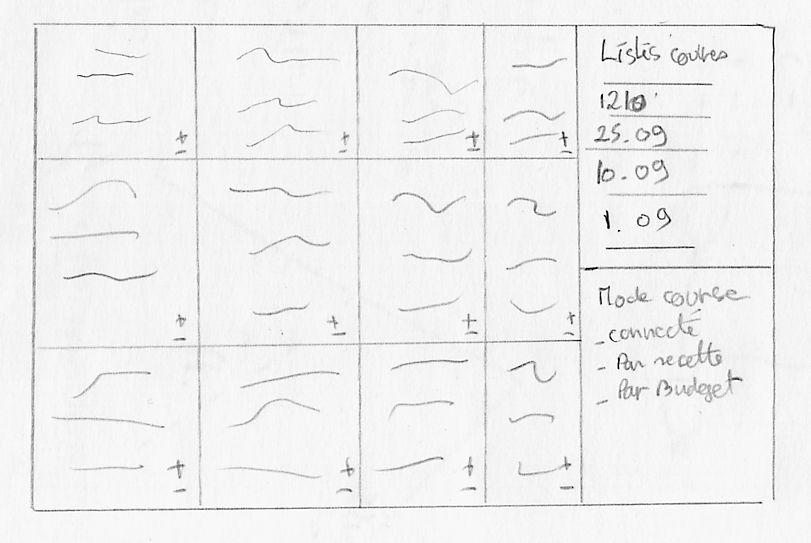 +
-
+
-
+
-
+
-
+
-
+
-
+
-
+
-
+
-
+
-
+
-
+
-
Listes courses
25.09
10.09
1.09
Mode course
- connecté
- Par recette
- Par Budget